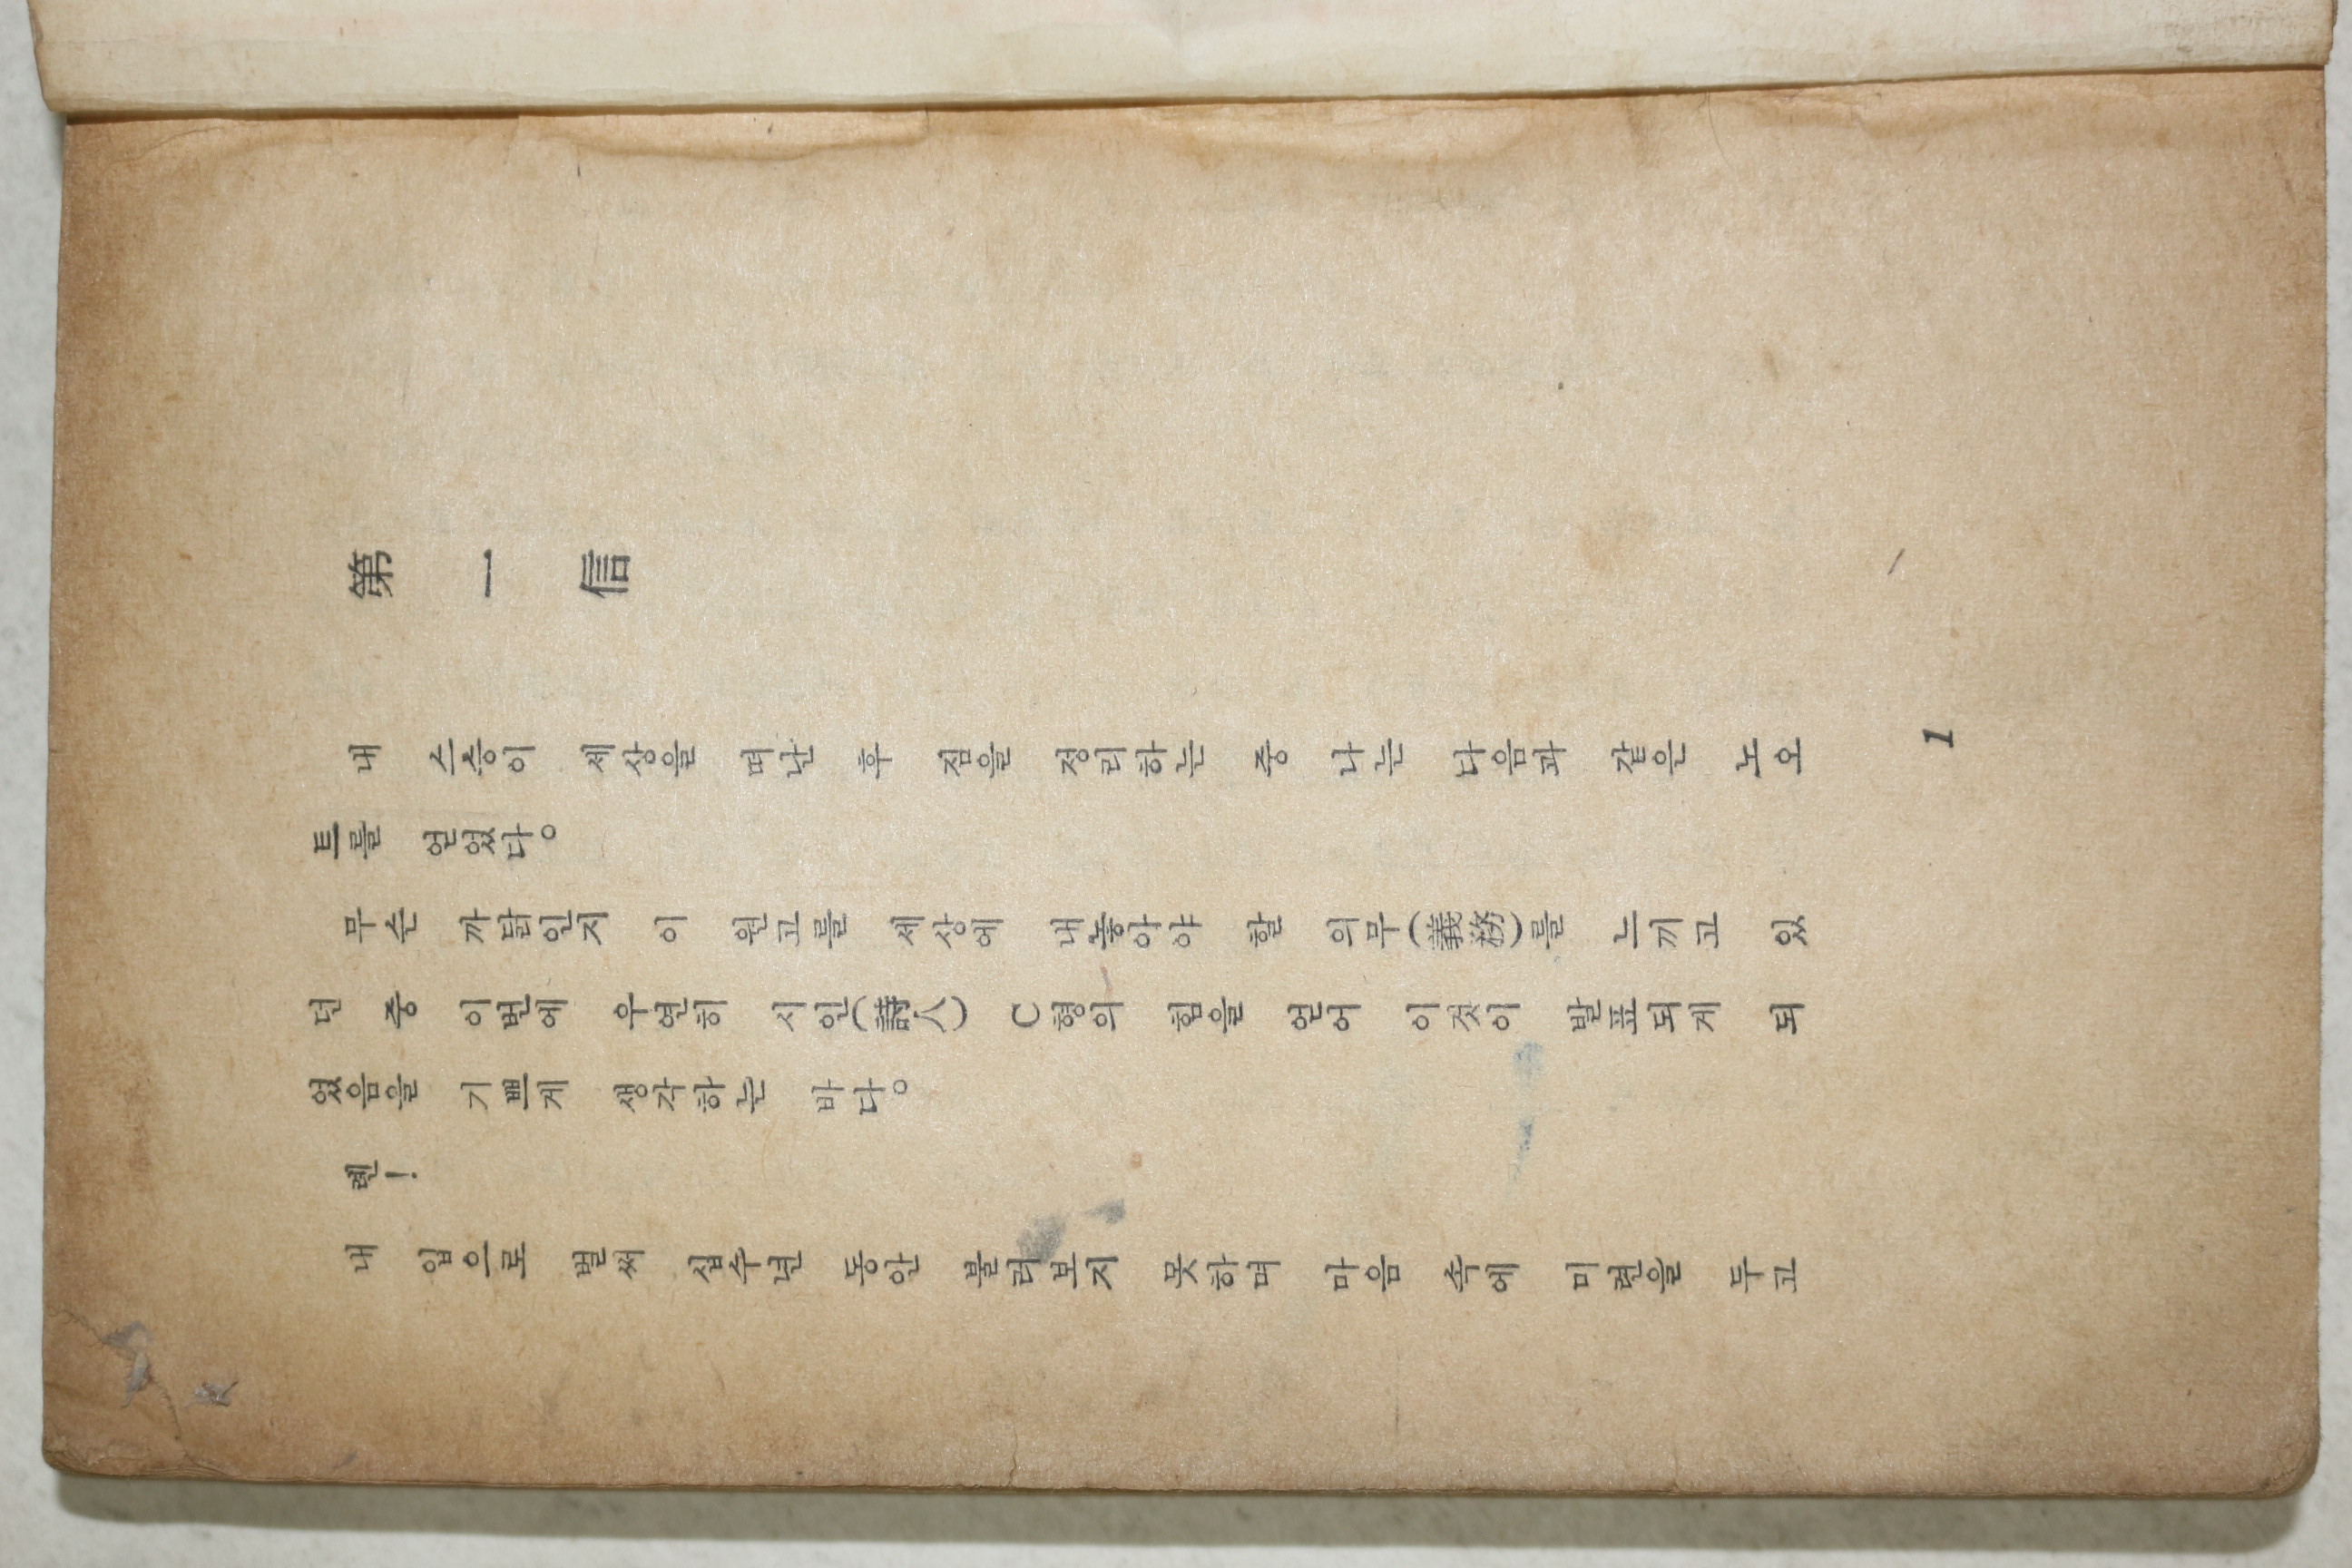 第一信
내 스승이 세상을 떠난 후 짐을 정리하는 중 나는 다음과 같은 노오
트를 얻었다。
무슨 까닭인지 이 원고를 세상에 내놓아야 할 의무(義務)를 느끼고 있
던 중 이번에 우연히 시인(詩人) C형의 힘을 얻어 이것이 발표되게 되
었음을 기쁘게 생각하는 바다。
렌!
내 입으로 벌써 십수년 동안 불러보지 못하며 마음 속에 미련을 두고
1